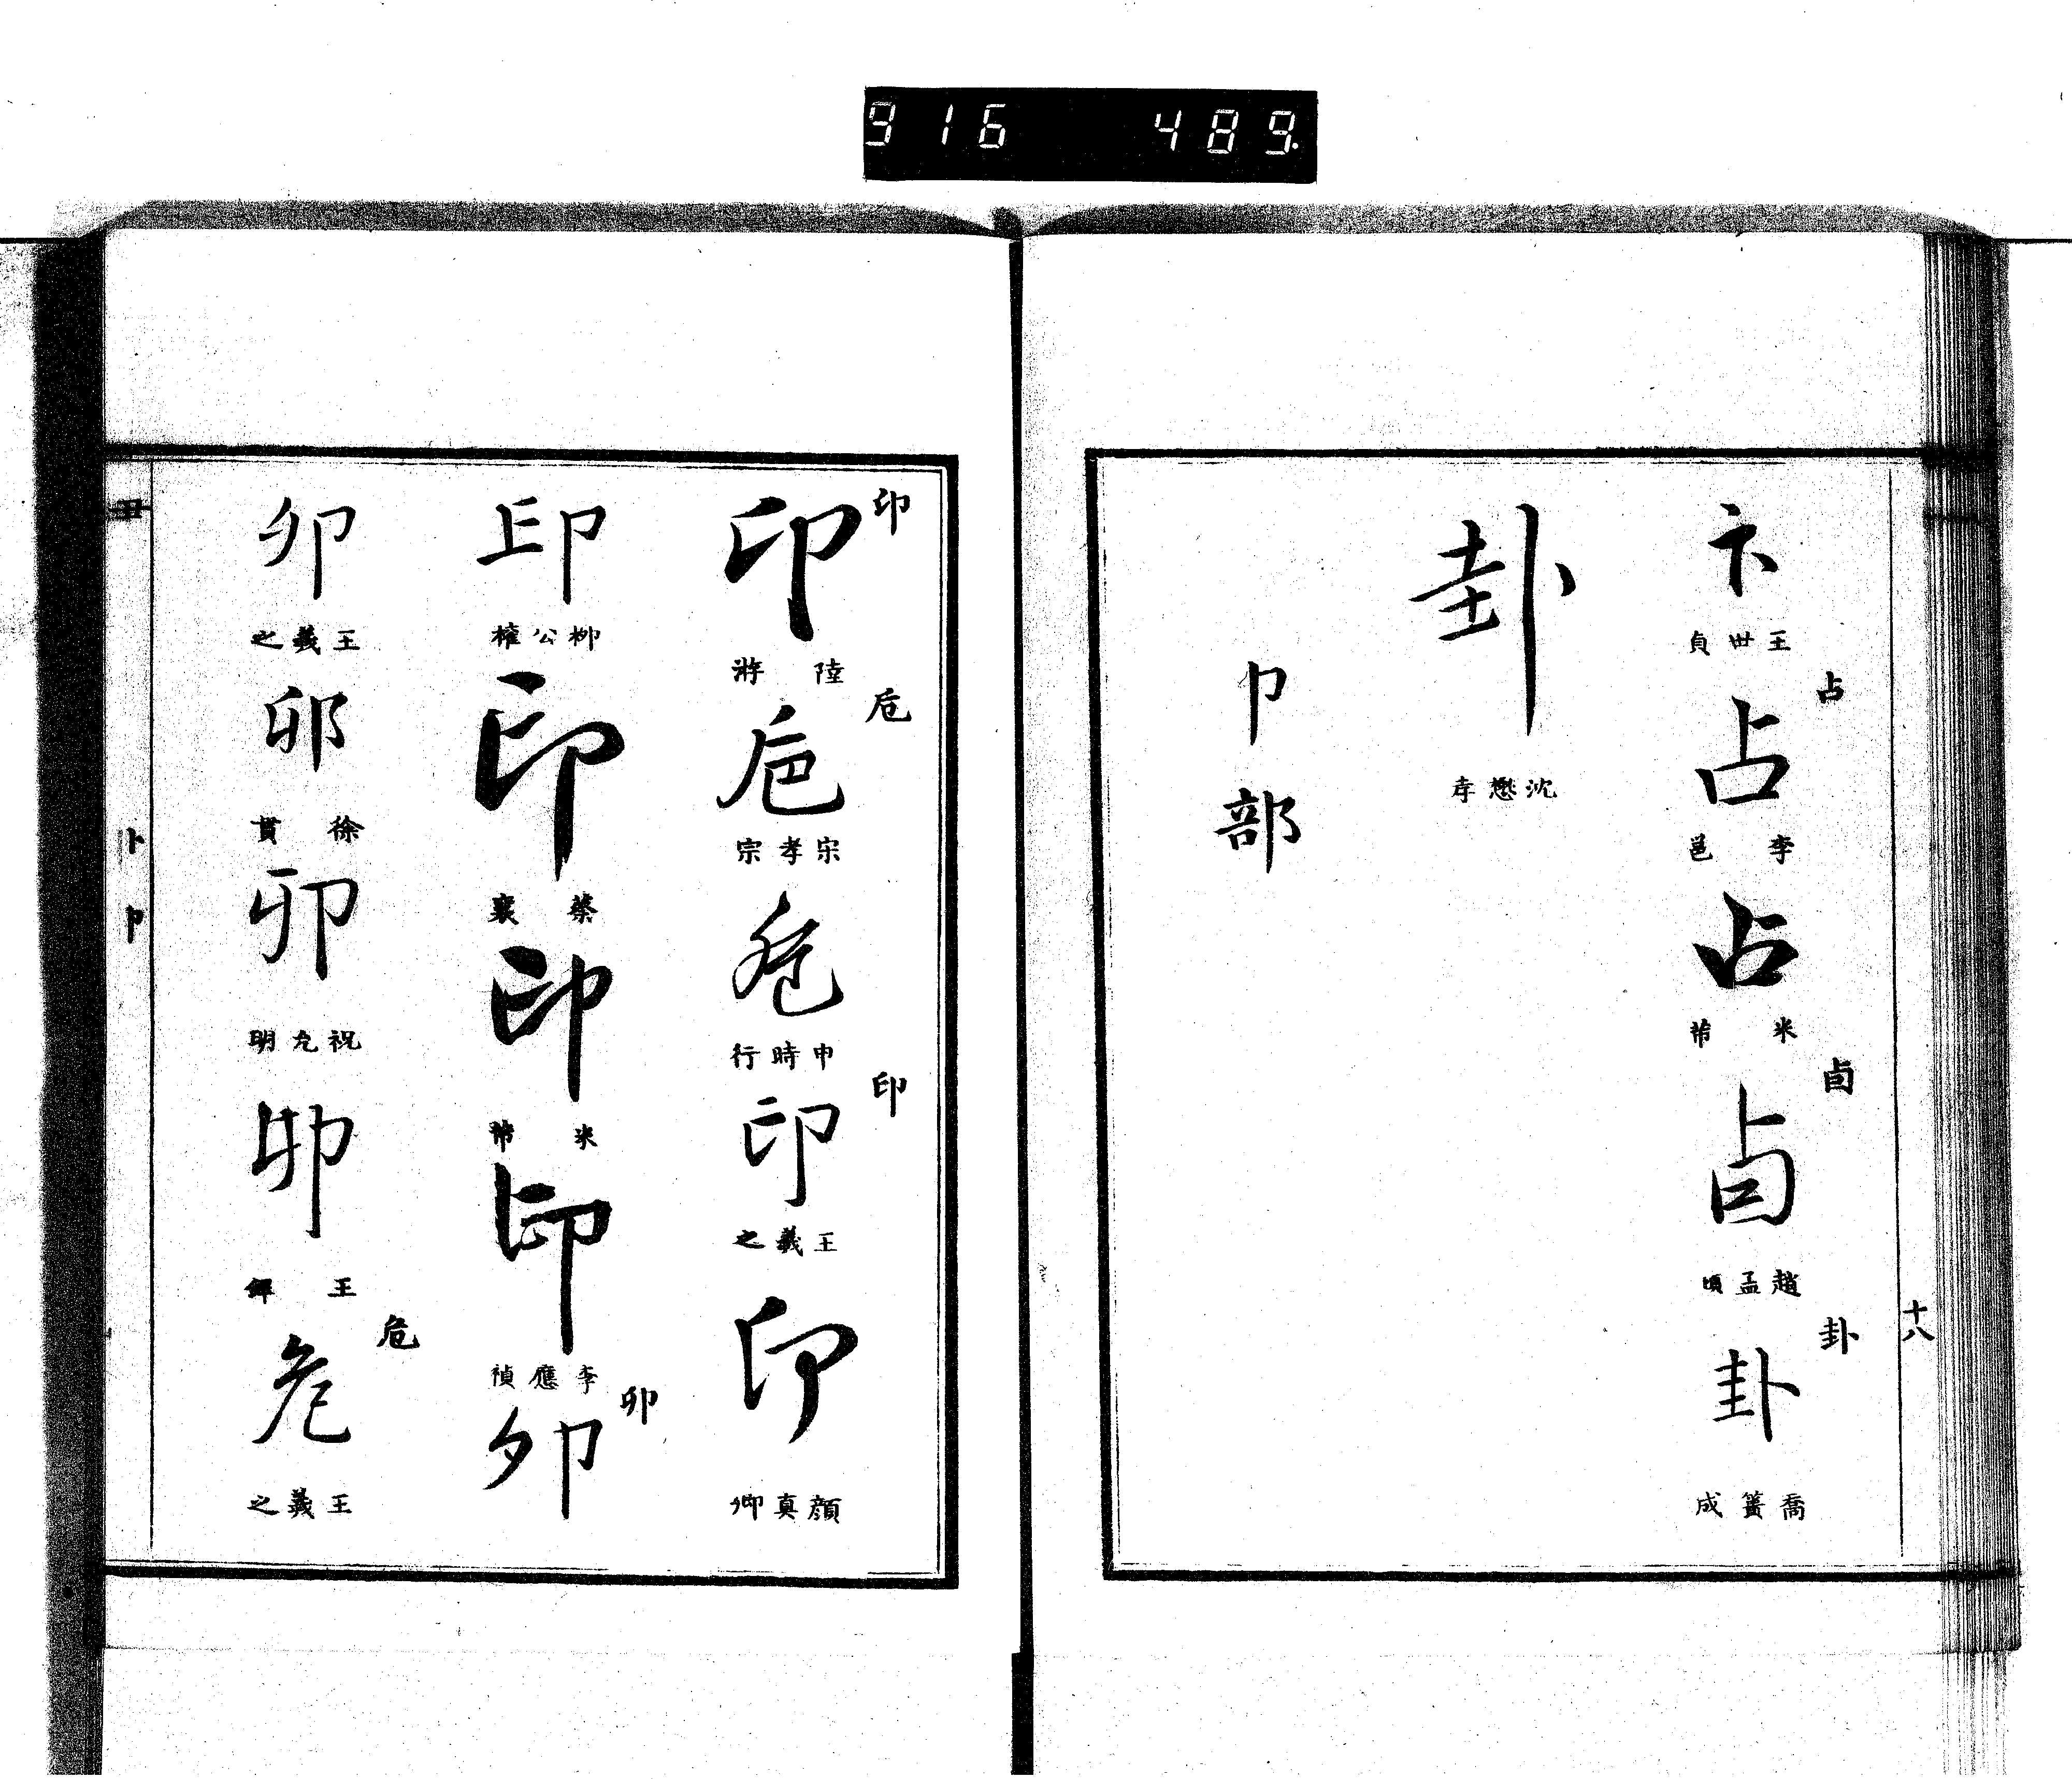 916 489
十八
卞
王世貞
占
占
李邕
占
米芾
卣
卣
趙孟頫
卦
卦
喬簣成
卦
沈懋孝
卩部
印
印
陸游
卮
巵
宋孝宗
巵
申時行
印
印
王羲之
印
顏真卿
印
柳公權
印
蔡襄
印
米芾
印
李應禎
卯
卯
卯
王羲之
卯
徐貫
卯
祝允明
卯
王鐸
危
危
王羲之
卜卩